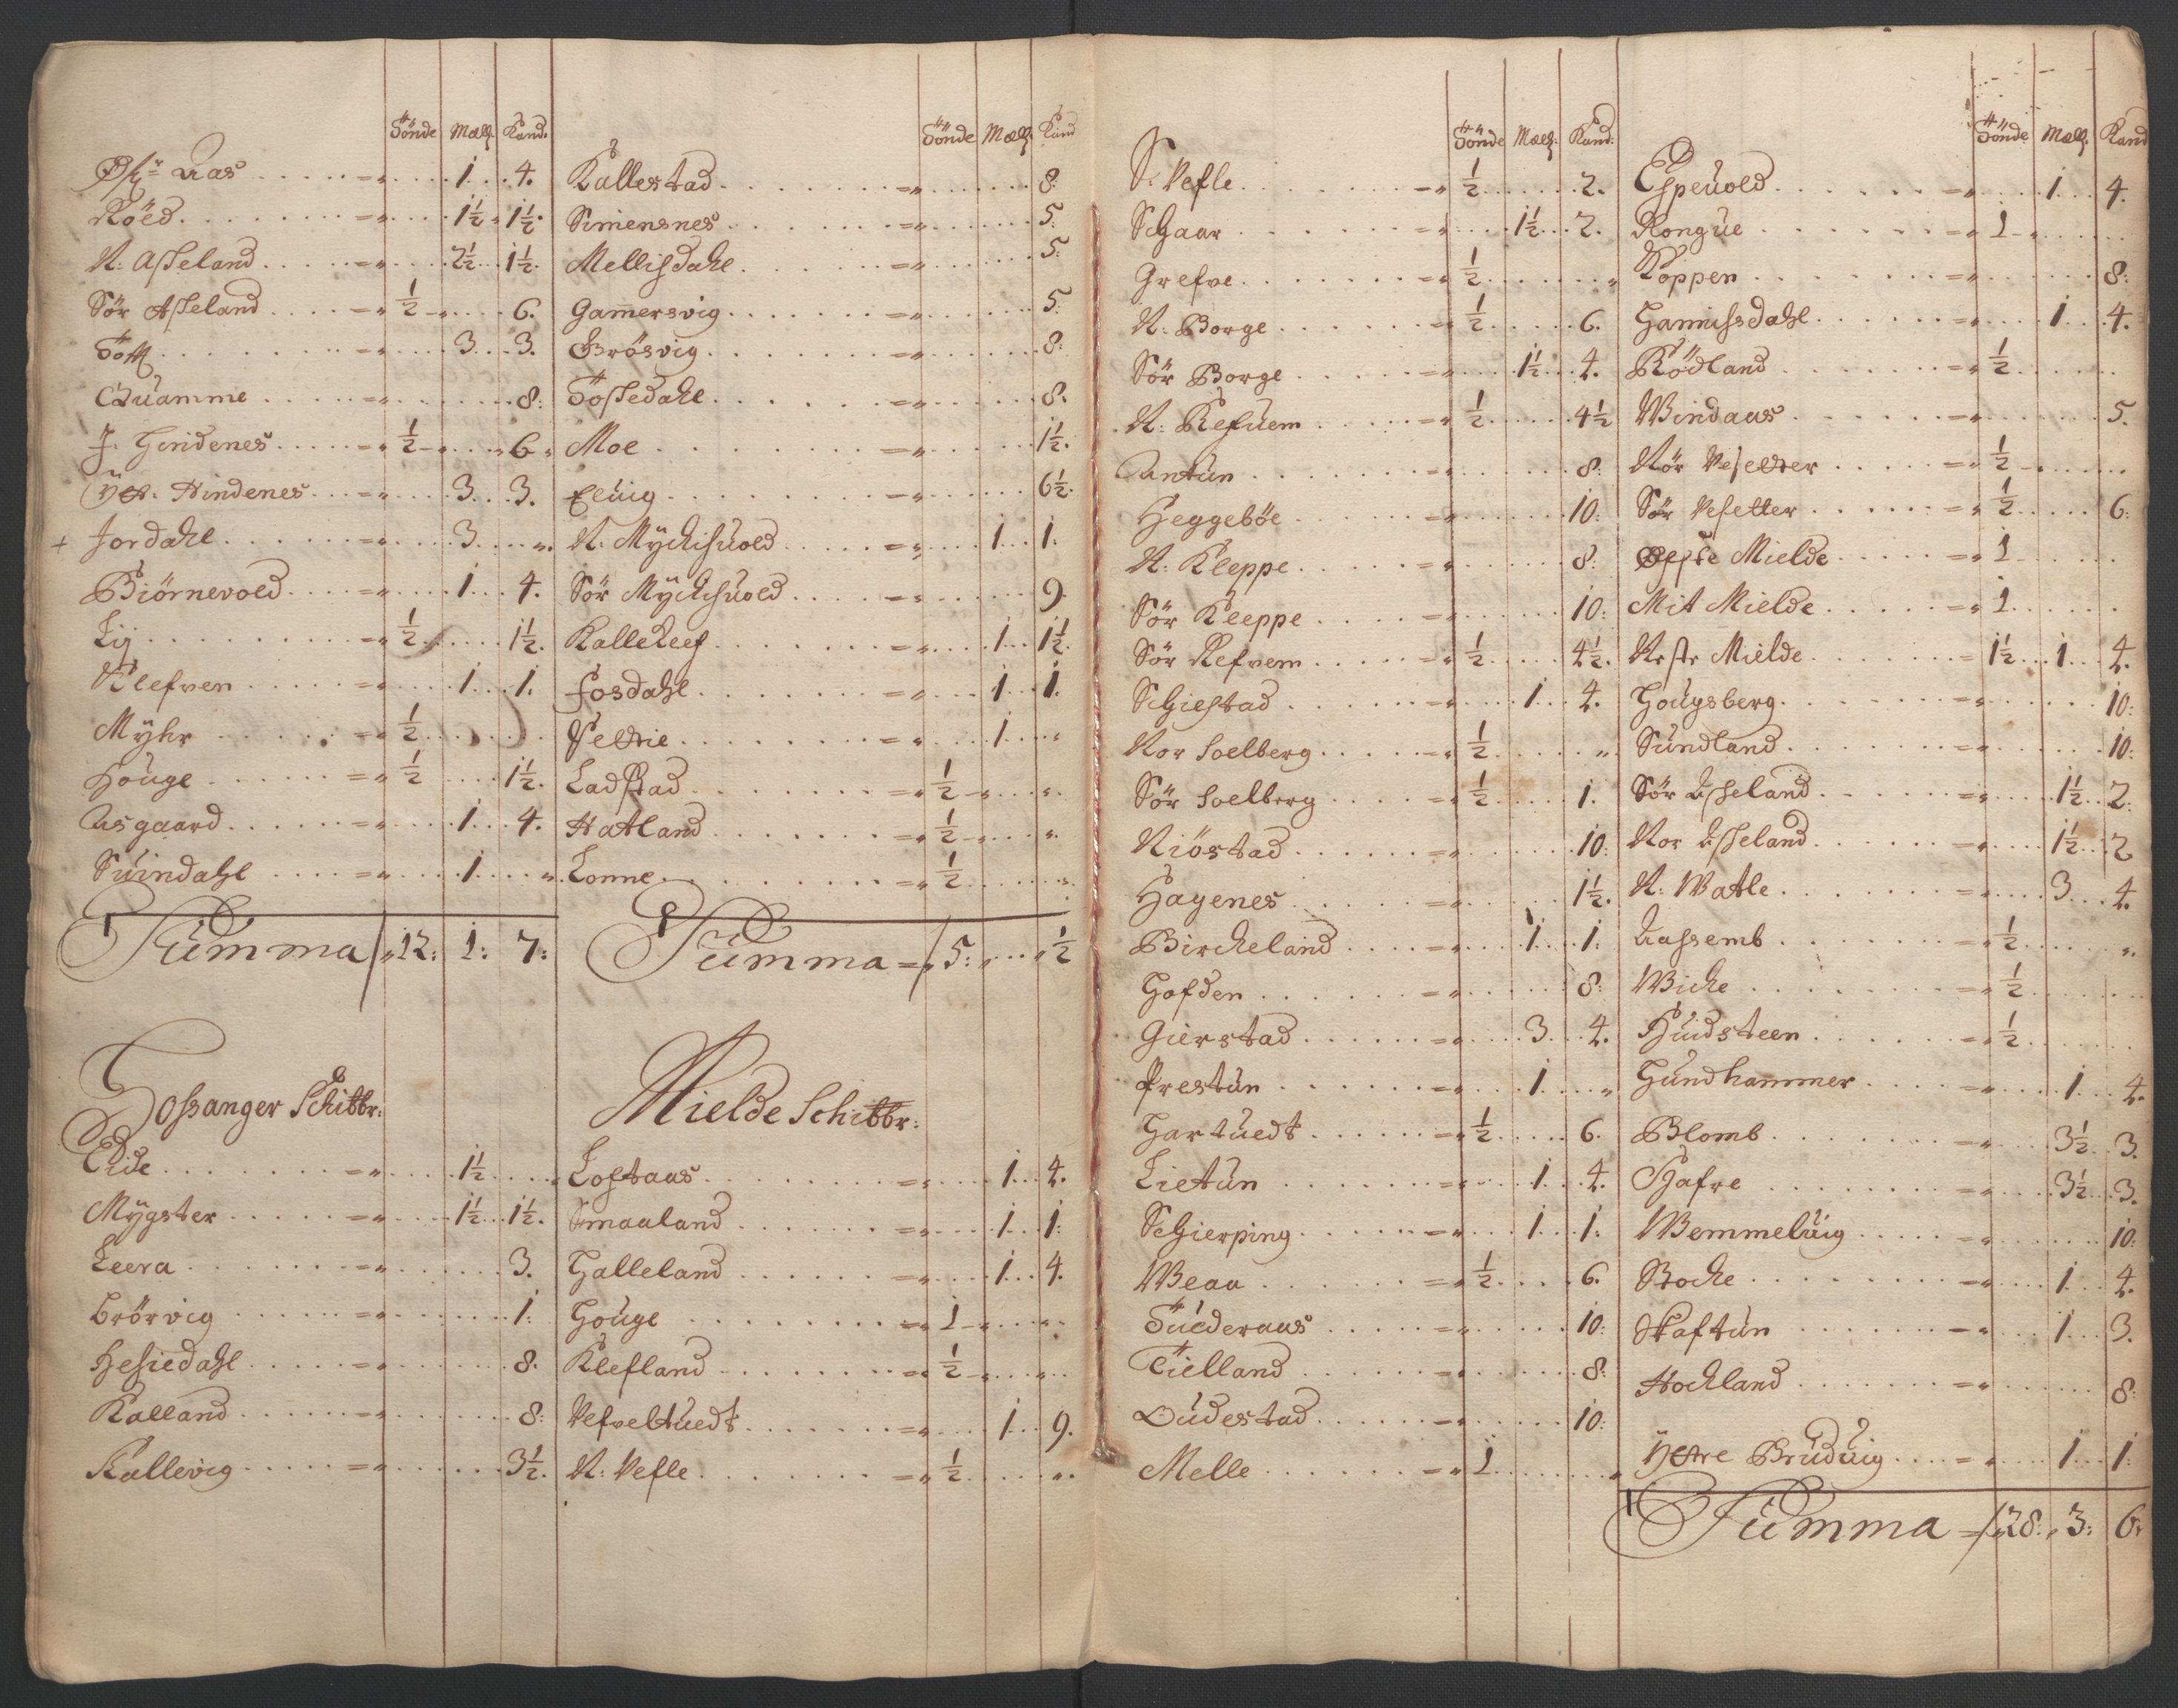 Tönde Mæll. Kand.
Aas 1 4.
Röed 1½ 1½.
N: Asseland 2½ 1½.
Sör Asseland ½ 6.
3 3.
Quamme 8:
J. Hindenes ½ 6
Hindenes 3 3.
+ Jordahl 3
Biörnevold 1 4.
Lij ½ 1½.
Klefven 1 1.
Myhr ½
Houge ½ 1½.
Aasgaard 1 4.
Suindahl 1
Summa 12: 1: 7:
Hossanger Schibbr:
Eide 1½
Mygster 1½ 1½.
Leera 3.
Brörvig 1:
Hesiedahl 8.
Kalland 8:
Kallevig 3½.
Tönde Mæll Kand
Kallestad 8:
Simensnes 5:
Mellisdahl 5:
Gam̄ersvig 5:
Brösvig 8:
Tössedahl 8.
Moe 1½.
Eluig 6½.
N: Myckisuold 1 1.
Sör Myckisuold 9.
Kallekleef 1 1½
Fosdahl 1 1.
1
Ladstad ½
Hatland ½
Lonne ½
Summa 5: ½
Mielde Schibbr:
Loftaas 1 4.
Smaaland 1 1:
Halleland 1 4.
Houge 1
Klefland ½
Vefveltuedt 1 9.
N: Vefle ½
Tönde Mæll: Kand:
S: Vefle ½ 2.
Schaar 1½ 2.
Grefve ½
N: Borge ½ 6.
Sör Borge 1½ 4.
N: Refuem ½ 4½
Antun 8:
Heggeböe 10:
N: Kleppe 8:
Sör Kleppe 10:
Sör Refvem ½ 4½.
Schiestad 1 4.
Nor Soelberg ½
Sör Soelberg ½ 1.
Niöstad 10:
Hagenes 1½.
Birckeland 1 1:
Hofden 8:
Gierstad 3 4.
Prestun 1
Hartuedt ½ 6.
Lietun 1 4.
Schierping 1 1.
Weaa ½ 6.
Tuederaas 10:
Tielland 8:
Oudestad 10:
Melle 1
Tönde Mæll. Kand
Espeuold 1 4.
Rongue 1
Koppen 8:
Hannissdahl 1 4.
Rödland ½
Windaas 5.
Nör Vesetter ½
Sör Vesetter ½ 6:
Öfste Mielde 1
Mit Mielde 1
Nestr Mielde 1½ 1 4.
Hougsberg 10:
Sundland 10:
Sör Asseland 1½ 2:
Nor Asseland 1½ 2
N: Watle 3 4.
Aassemb ½
Wicke ½
Huidsteen ½
Hundhammer 1 4.
Blomb 3½ 3.
3½ 3.
Wemmeluig 10:
Bocke 1 4.
Skaftun 1 3.
Hockland 8:
Ytre Bruduig 1 1:
Summa 28: 3: 6: